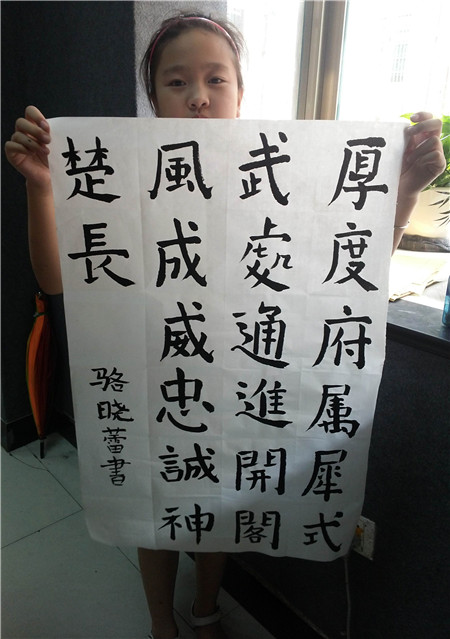 厚度府属犀式
武處通進開閣
風成威忠誠神
楚長
骆晓蕾書